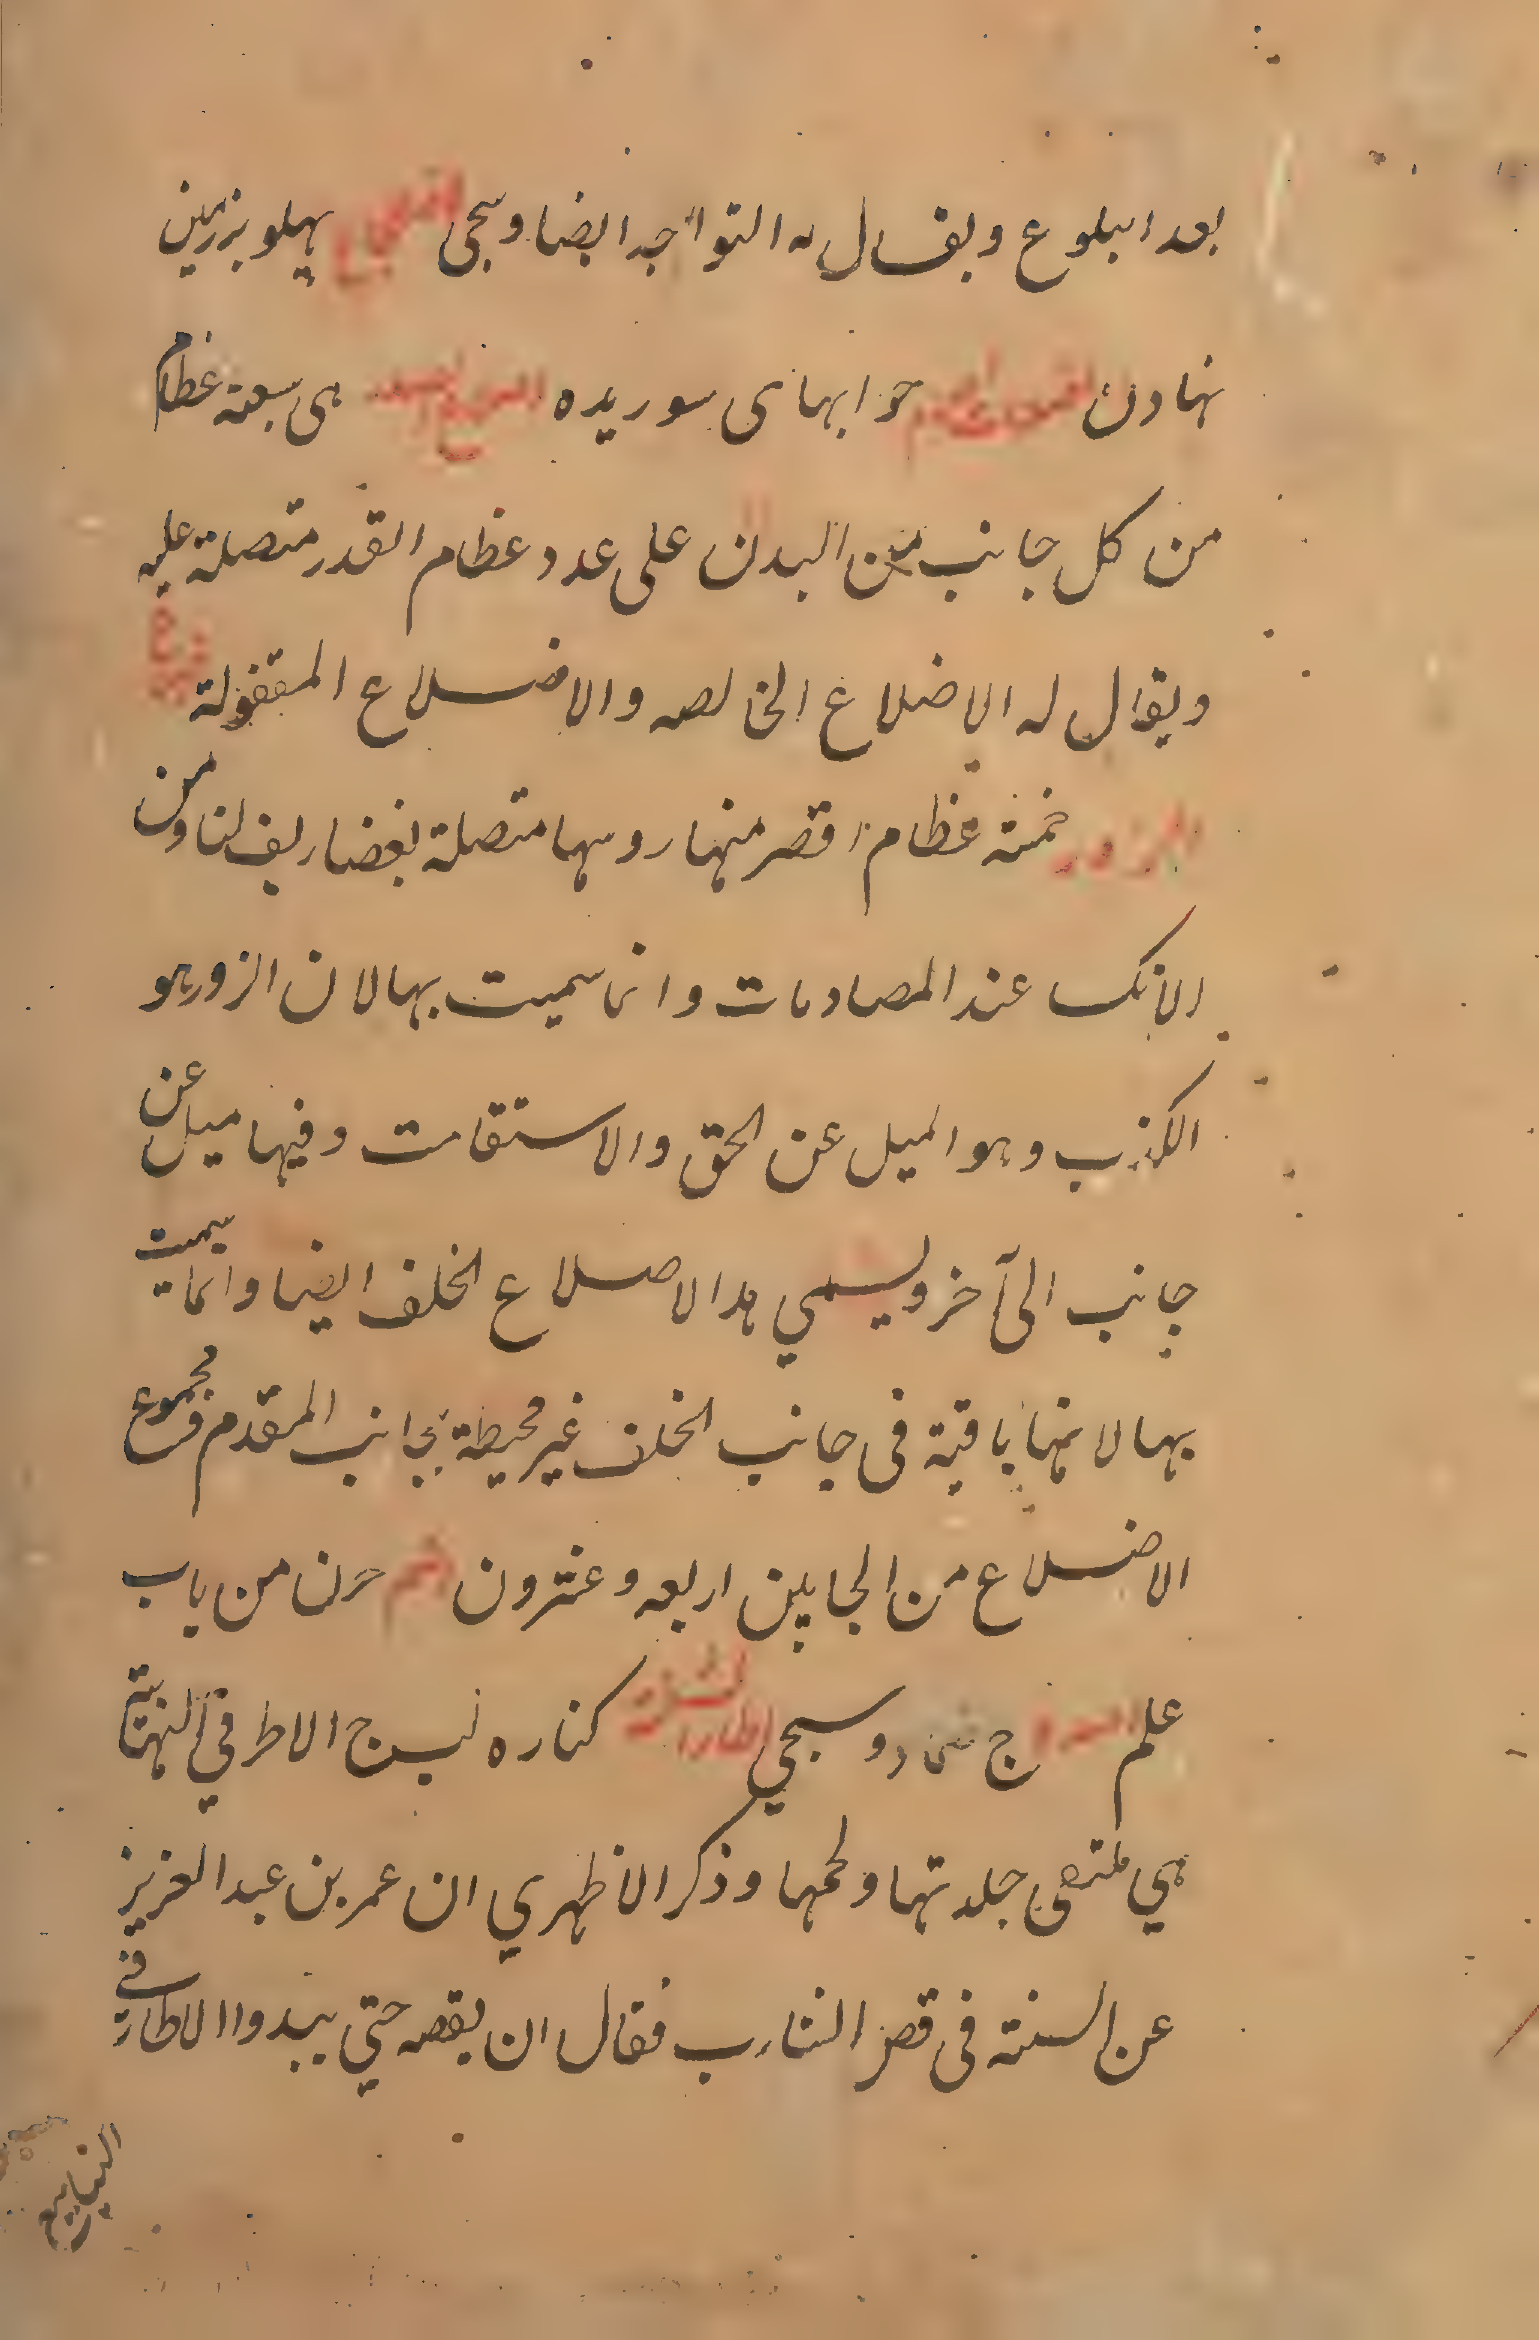 بعد البلوغ ويقال له التواجد ايضا وسيجى پهلو بزمين
نهادن خوابهاى سوريده هى سبعة عظام
من كل جانب من البدن على عدد عظام القدر متصلة عليه
ويقال له الاضلاع الخالصه والاضلاع المقفولة
الزور خمسة عظام اقصر منها روسها متصلة بغضاريف لنا ومن
الانكسا عند المصادمات وانما سميت بها لان الزور هو
الكذب وهو الميل عن الحق والاستقامت وفيها ميل عن
جانب الى آخر ويسمي هذا الاضلاع الخلف ايضا وانما سميت
بها لانها باقية فى جانب الخلف غير محيطة بجانب المقدم فمجموع
الاضلاع من الجانبين اربعه وعشرون حرن من باب
علم ج وسيجي اطار الشفة كناره لب ج الاطر فى النهاية
هي ملتقى جلدتها ولحمها وذكر الاظهري ان عمر بن عبد العزيز
عن السنة فى قص الشارب فقال ان يقصه حتي يبدوا الاطار فى